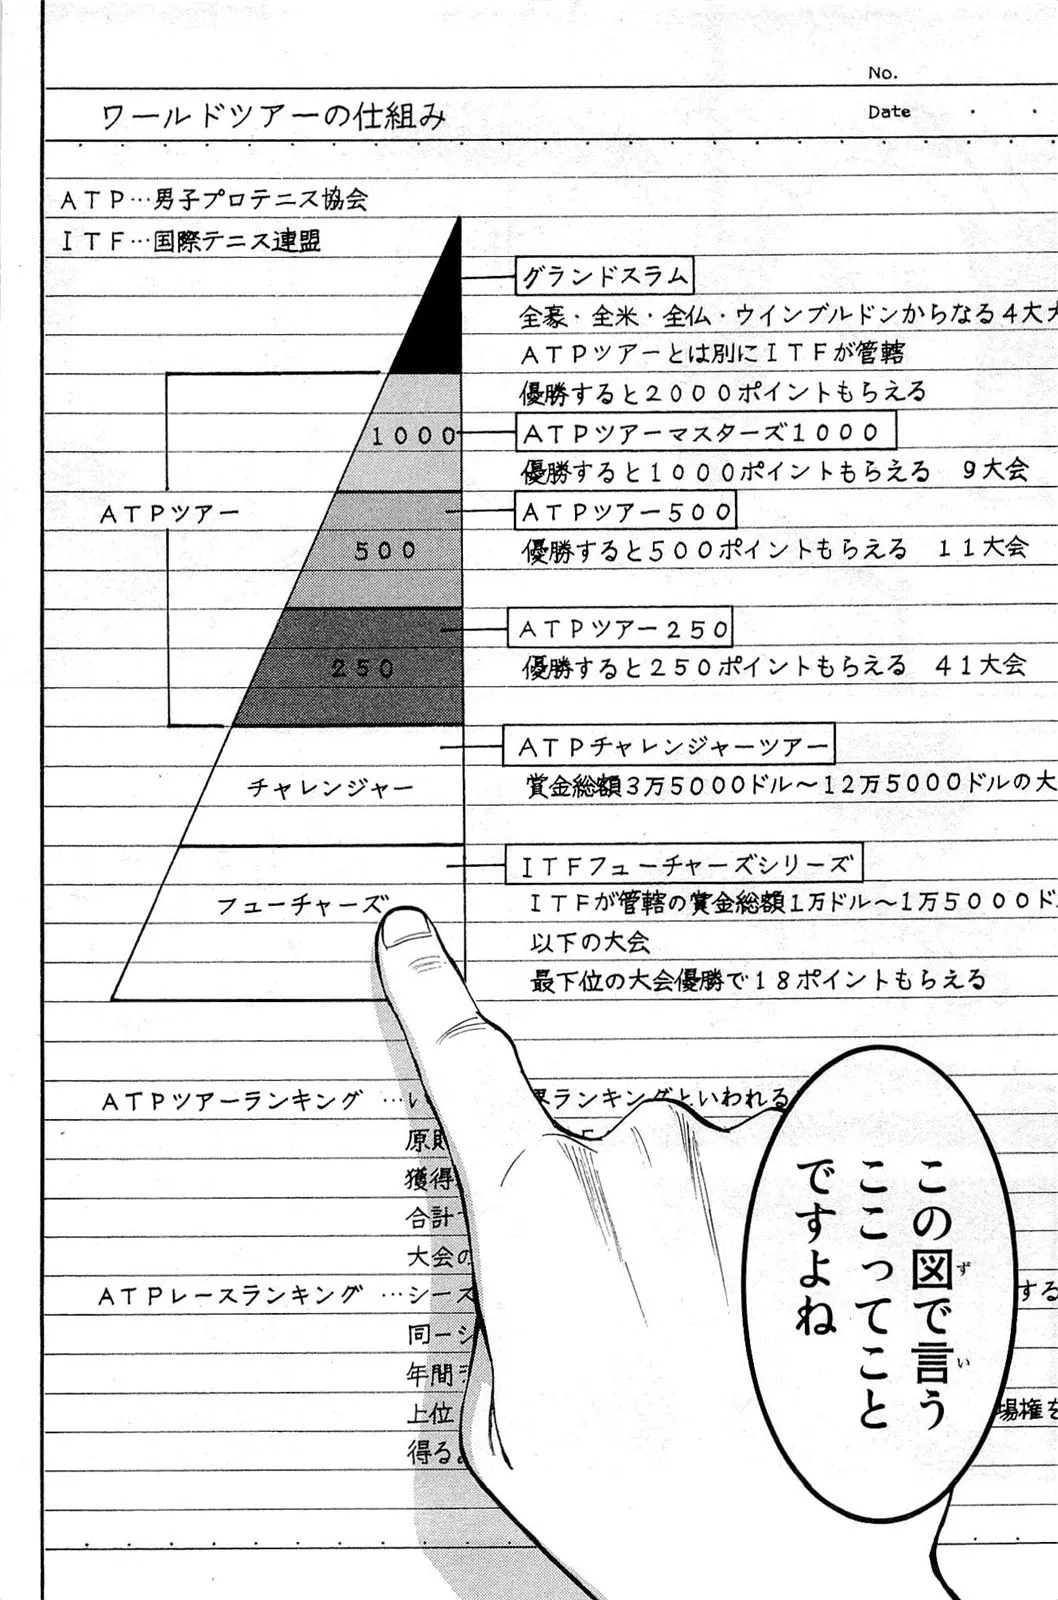 No.
ワールドツアーの仕組み
Date
ATP…男子プロテニス協会
ITF…国際テニス連盟
グランドスラム
全豪・全米・全仏・ウインブルドンからなる4大
ATPツアーとは別にITFが管轄
優勝すると2000ポイントもらえる
1000
ATPツアーマスターズ1000
優勝すると1000ポイントもらえる 9大会
ATPツアー
ATPツアー500
500
優勝すると500ポイントもらえる 11大会
ATPツアー250
250
優勝すると250ポイントもらえる 41大会
ATPチャレンジャーツアー
チャレンジャー
賞金総額3万5000ドル～12万5000ドルの大
ITFフューチャーズシリーズ
フューチャーズ
ITFが管轄の賞金総額1万ドル～1万5000ド
以下の大会
最下位の大会優勝で18ポイントもらえる
ATPツアーランキング…い
ランキングといわれる
原則
獲得
合計
大会の
ATPレースランキング…シーズ
する
同一シ
年間
上位
場権を
得る
この図で言う
ず
い
ここってこと
ですよね